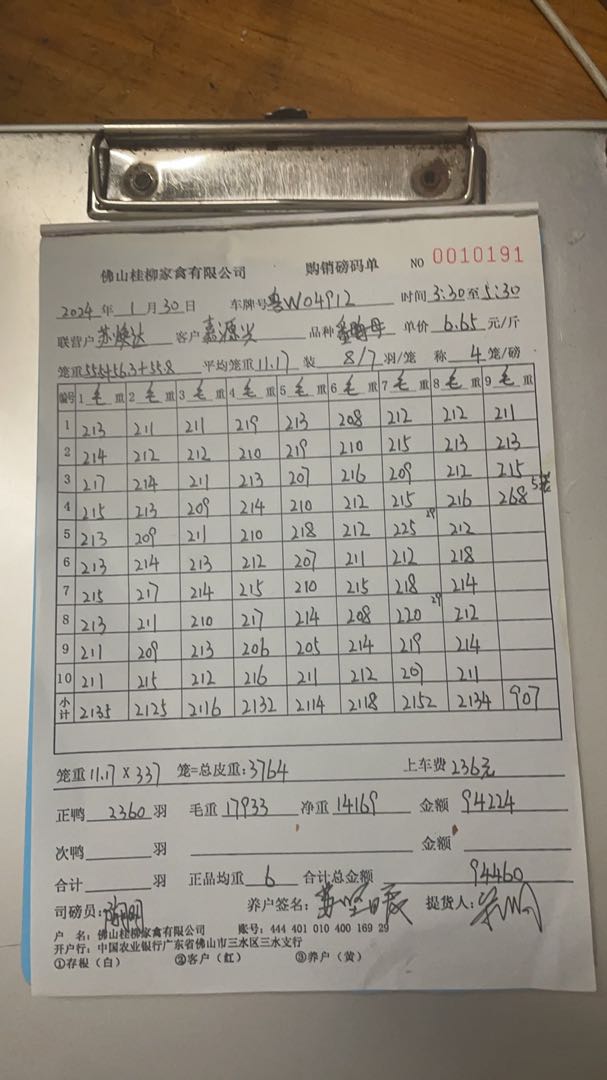 佛山桂柳家禽有限公司 购销磅码单 NO 0010191
2024年1月30日 车牌号粤W04912 时间3:30至5:30
联营户苏焕达 客户嘉源兴 品种 单价6.65元/斤
笼重55.5+56.3+55.8 平均笼重11.17装8/7羽/笼 称4笼/磅
编号 1毛重 2毛重 3毛重 4毛重 5毛重 6毛重 7毛重 8毛重 9毛重
1 213 211 211 219 213 208 212 212 211
2 214 212 212 210 219 210 215 213 213
3 217 214 211 213 207 216 209 212 215
4 215 213 209 214 210 212 215 216 268 5笼
5 213 209 211 210 218 212 225 29 212
6 213 214 213 212 207 211 212 218
7 215 217 214 215 210 215 218 214
8 213 211 210 217 214 208 220 29 212
9 211 209 213 206 205 214 219 214
10 211 215 212 216 211 212 207 211
小计 2135 2125 2116 2132 2114 2118 2152 2134 907
笼重11.17×337 笼=总皮重:3764 上车费236元
正鸭2360羽 毛重17933 净重14169 金额94224
次鸭 羽 金额
合计 羽 正品均重6 合计总金额94460
司磅员: 养户签名: 提货人:
户 名:佛山桂柳家禽有限公司 账号:444 401 010 400 169 29
开户行:中国农业银行广东省佛山市三水区三水支行
①存根(白) ②客户(红) ③养户(黄)